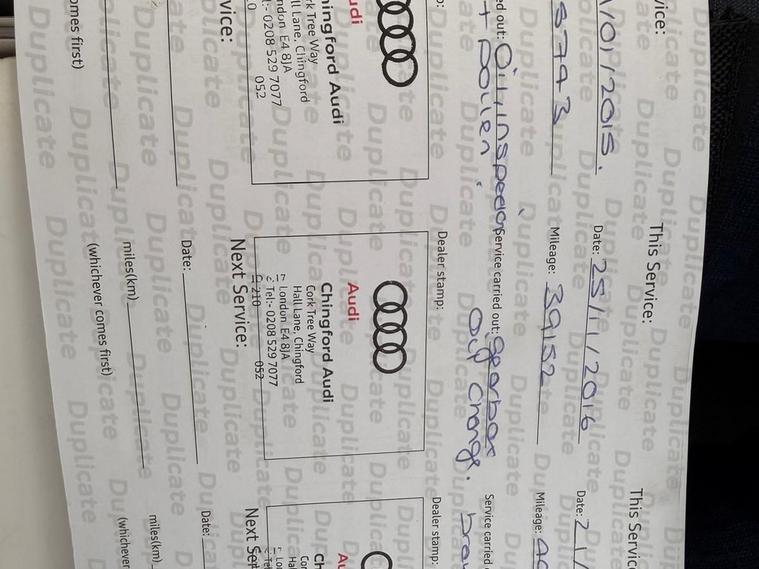 vice:
/01/2015.
3793
ed out: Oil, inspection
+ Pollen
p:
udi
hingford Audi
rk Tree Way
ll Lane, Chingford
ndon E4 8JA
l:- 0208 529 7077
052
rvice:
omes first)
This Service:
Date: 25/11/2016
Mileage: 39152
Service carried out: gearbox
oil change.
Dealer stamp:
Audi
Chingford Audi
Cork Tree Way
Hall Lane, Chingford
London E4 8JA
Tel:- 0208 529 7077
052
Next Service:
Date:
miles(km)
(whichever comes first)
This Servic
Date: 21/
Mileage: 
Service carried
Dealer stamp:
Au
Ch
Cor
Hal
Lon
Tel
Next Ser
Date:
miles(km)
(whichever
Duplicate